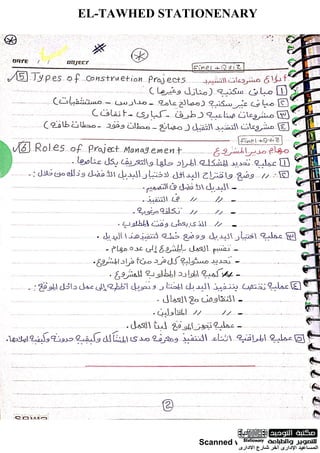 EL-TAWHED STATIONENARY
DATE / / OBJECT
Final + Quiz
5 Types of construction Projects أنواع مشروعات التشييد
1 مبانى سكنية (منازل وغيرها)
2 مبانى غير سكنية (مصالح عامة - مدارس - مستشفيات)
3 مشروعات صناعية (طرق - كبارى - انفاق)
4 مشروعات التشييد الثقيل (مصانع - محطات وقود - محطات طاقة)
Final + Quiz
6 Roles of Project Management
مهام مدير المشروع
1 عملية تحديد المشكلة المراد حلها والتعريف بكل عناصرها.
2 // وضع واقتراح البدائل لاختيار البديل الأفضل وذلك من خلال:
- البديل الأفضل فى التصميم.
- // // فى التنفيذ.
- // // تكلفة
- // // الذى يعطى وقت المطلوب.
3 عملية اختيار البديل ووضع خطة لتنفيذ هذا البديل.
- تقسيم العمل بالمشروع إلى عدة مهام.
- تحديد مسئولية كل فرد من أفراد المشروع.
- كمية الموارد المطلوبة للمشروع.
4 عملية تختص بتنفيذ البديل المختار وتحويل الخطة إلى عمل داخل الموقع:
- التعاقد مع العمال.
- // // المقاولين.
- عملية تجهيز الموقع لبدأ العمل.
5 عملية المراقبة أثناء التنفيذ ومعرفة مدى المشاكل وكيفية حدوثها وكيفية حلها.
2
Scanned
مكتبة التوحيد
للتصوير والطباعة
المساعيد الإدارى آخر شارع الإدارى